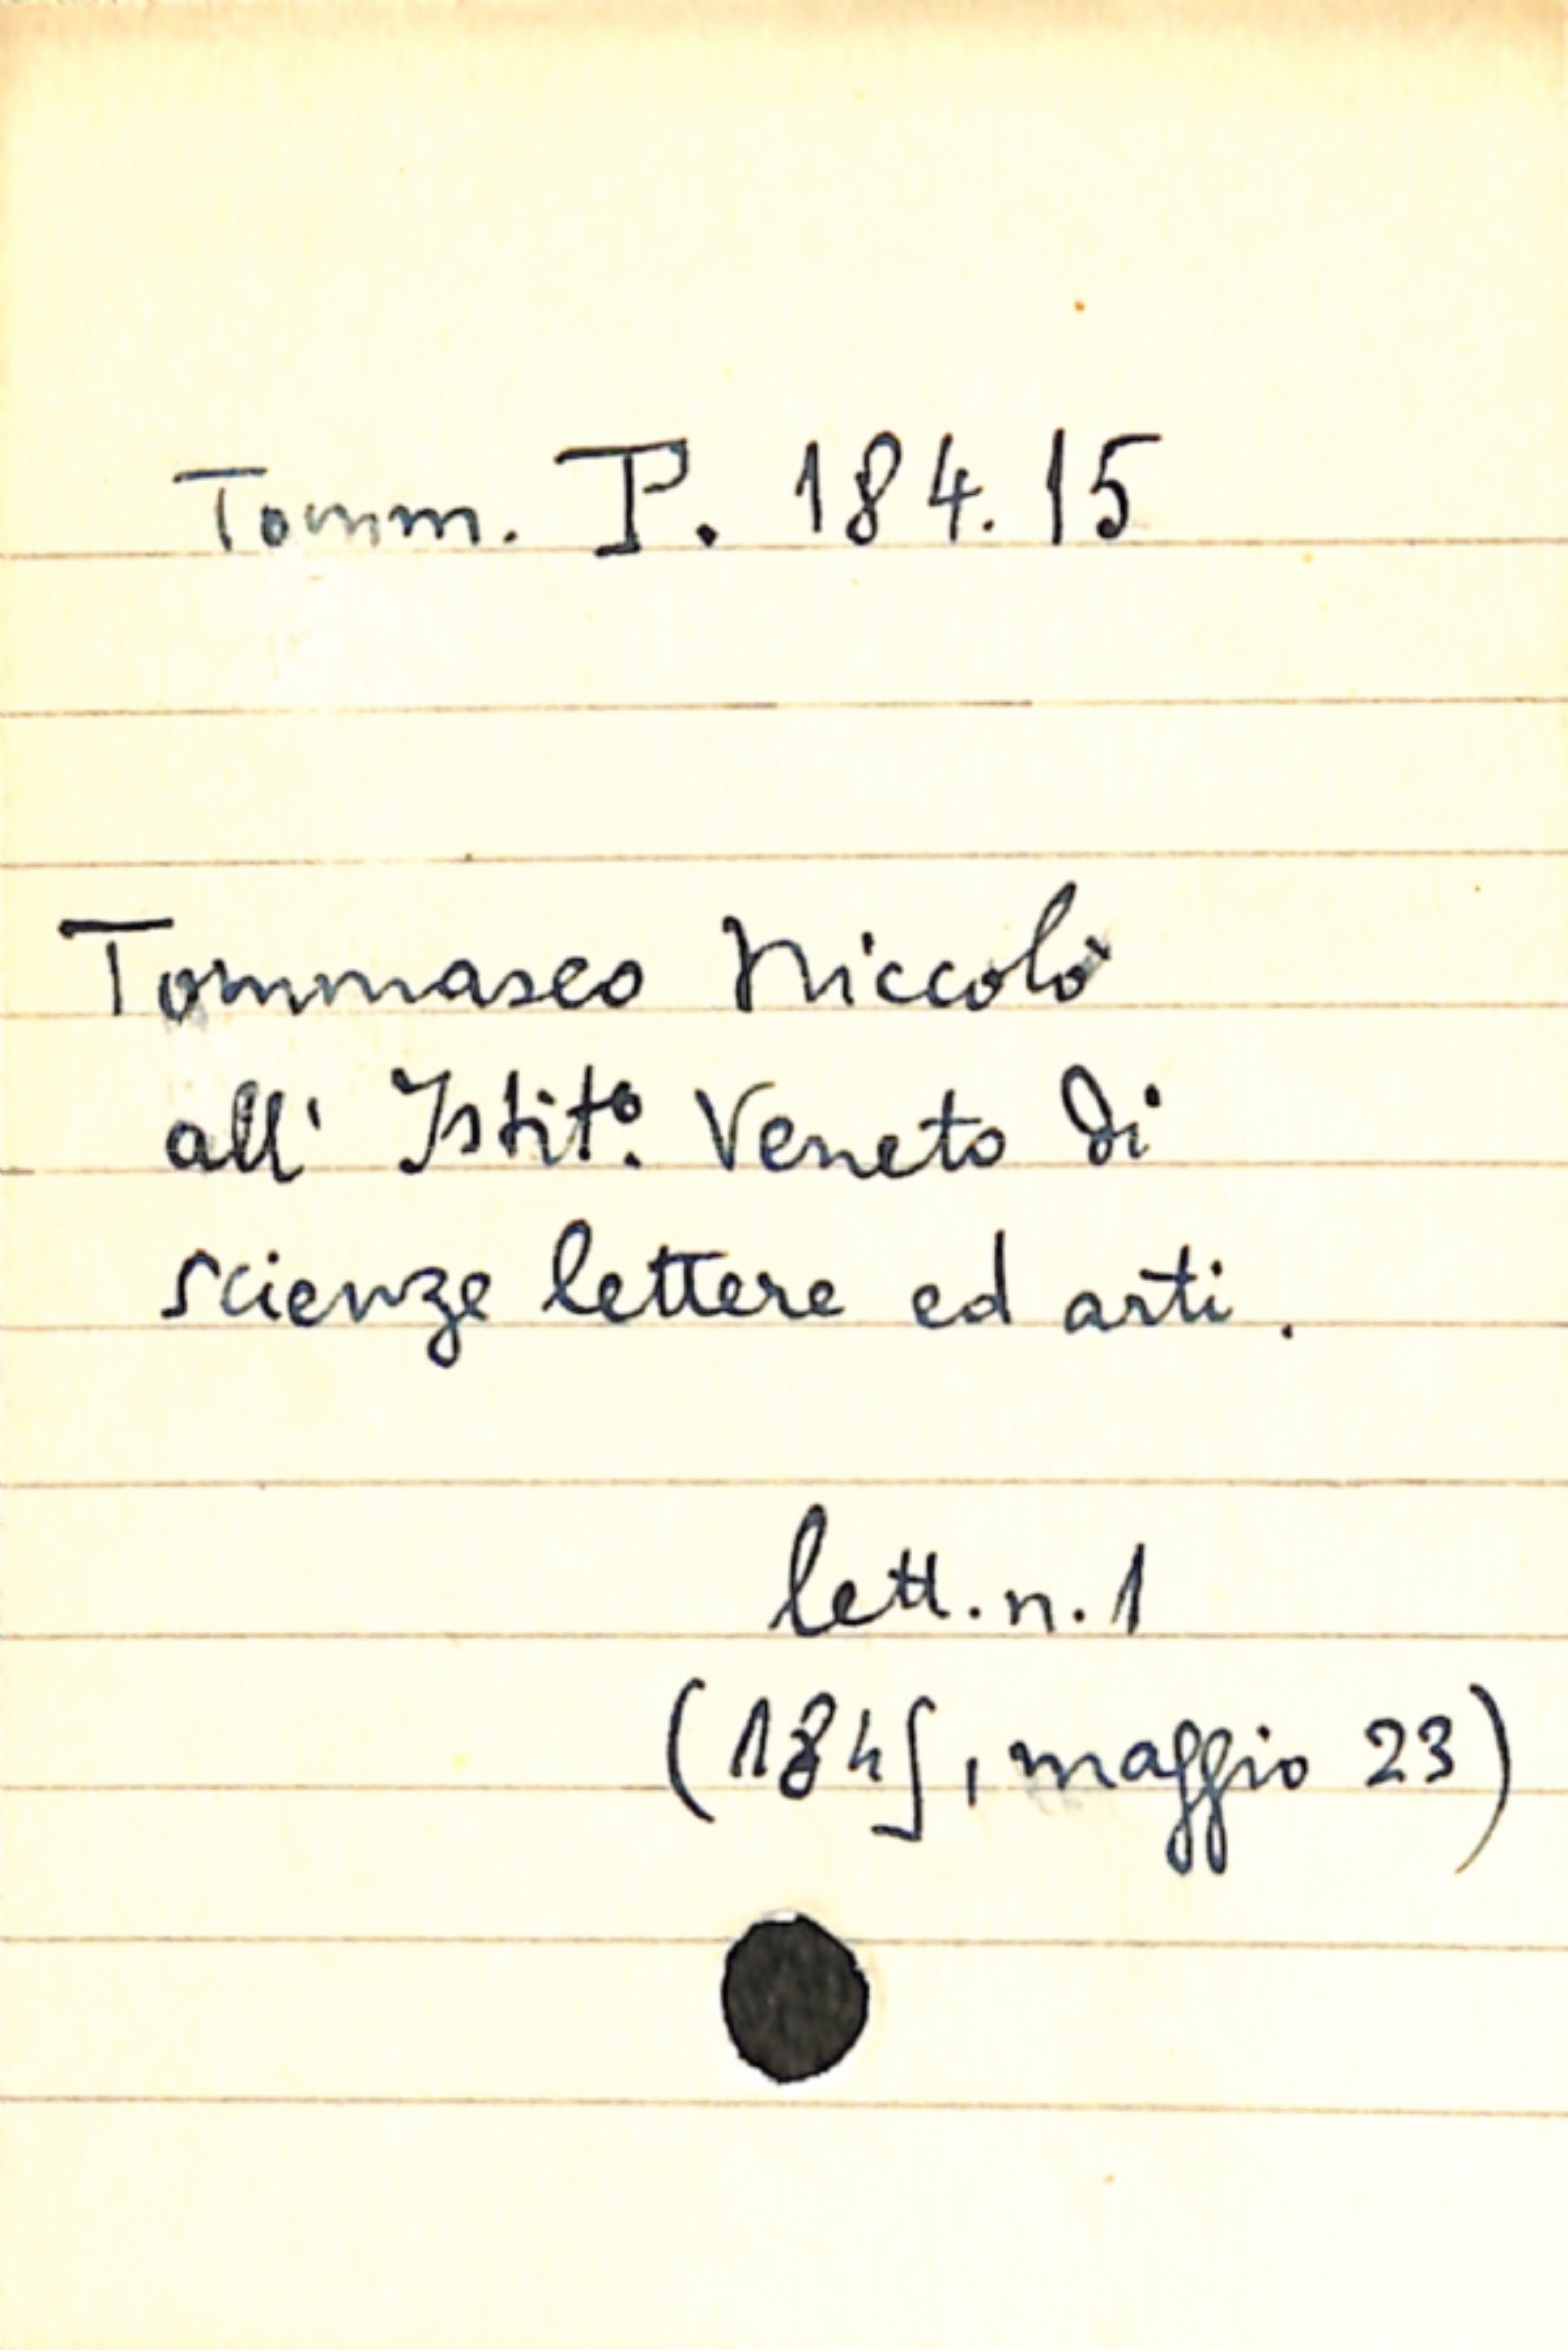 Tomm. P. 184.15
Tommaseo Niccolò
all' Istitº. Veneto di
scienze lettere ed arti.
lett. n. 1
(1845, maggio 23)